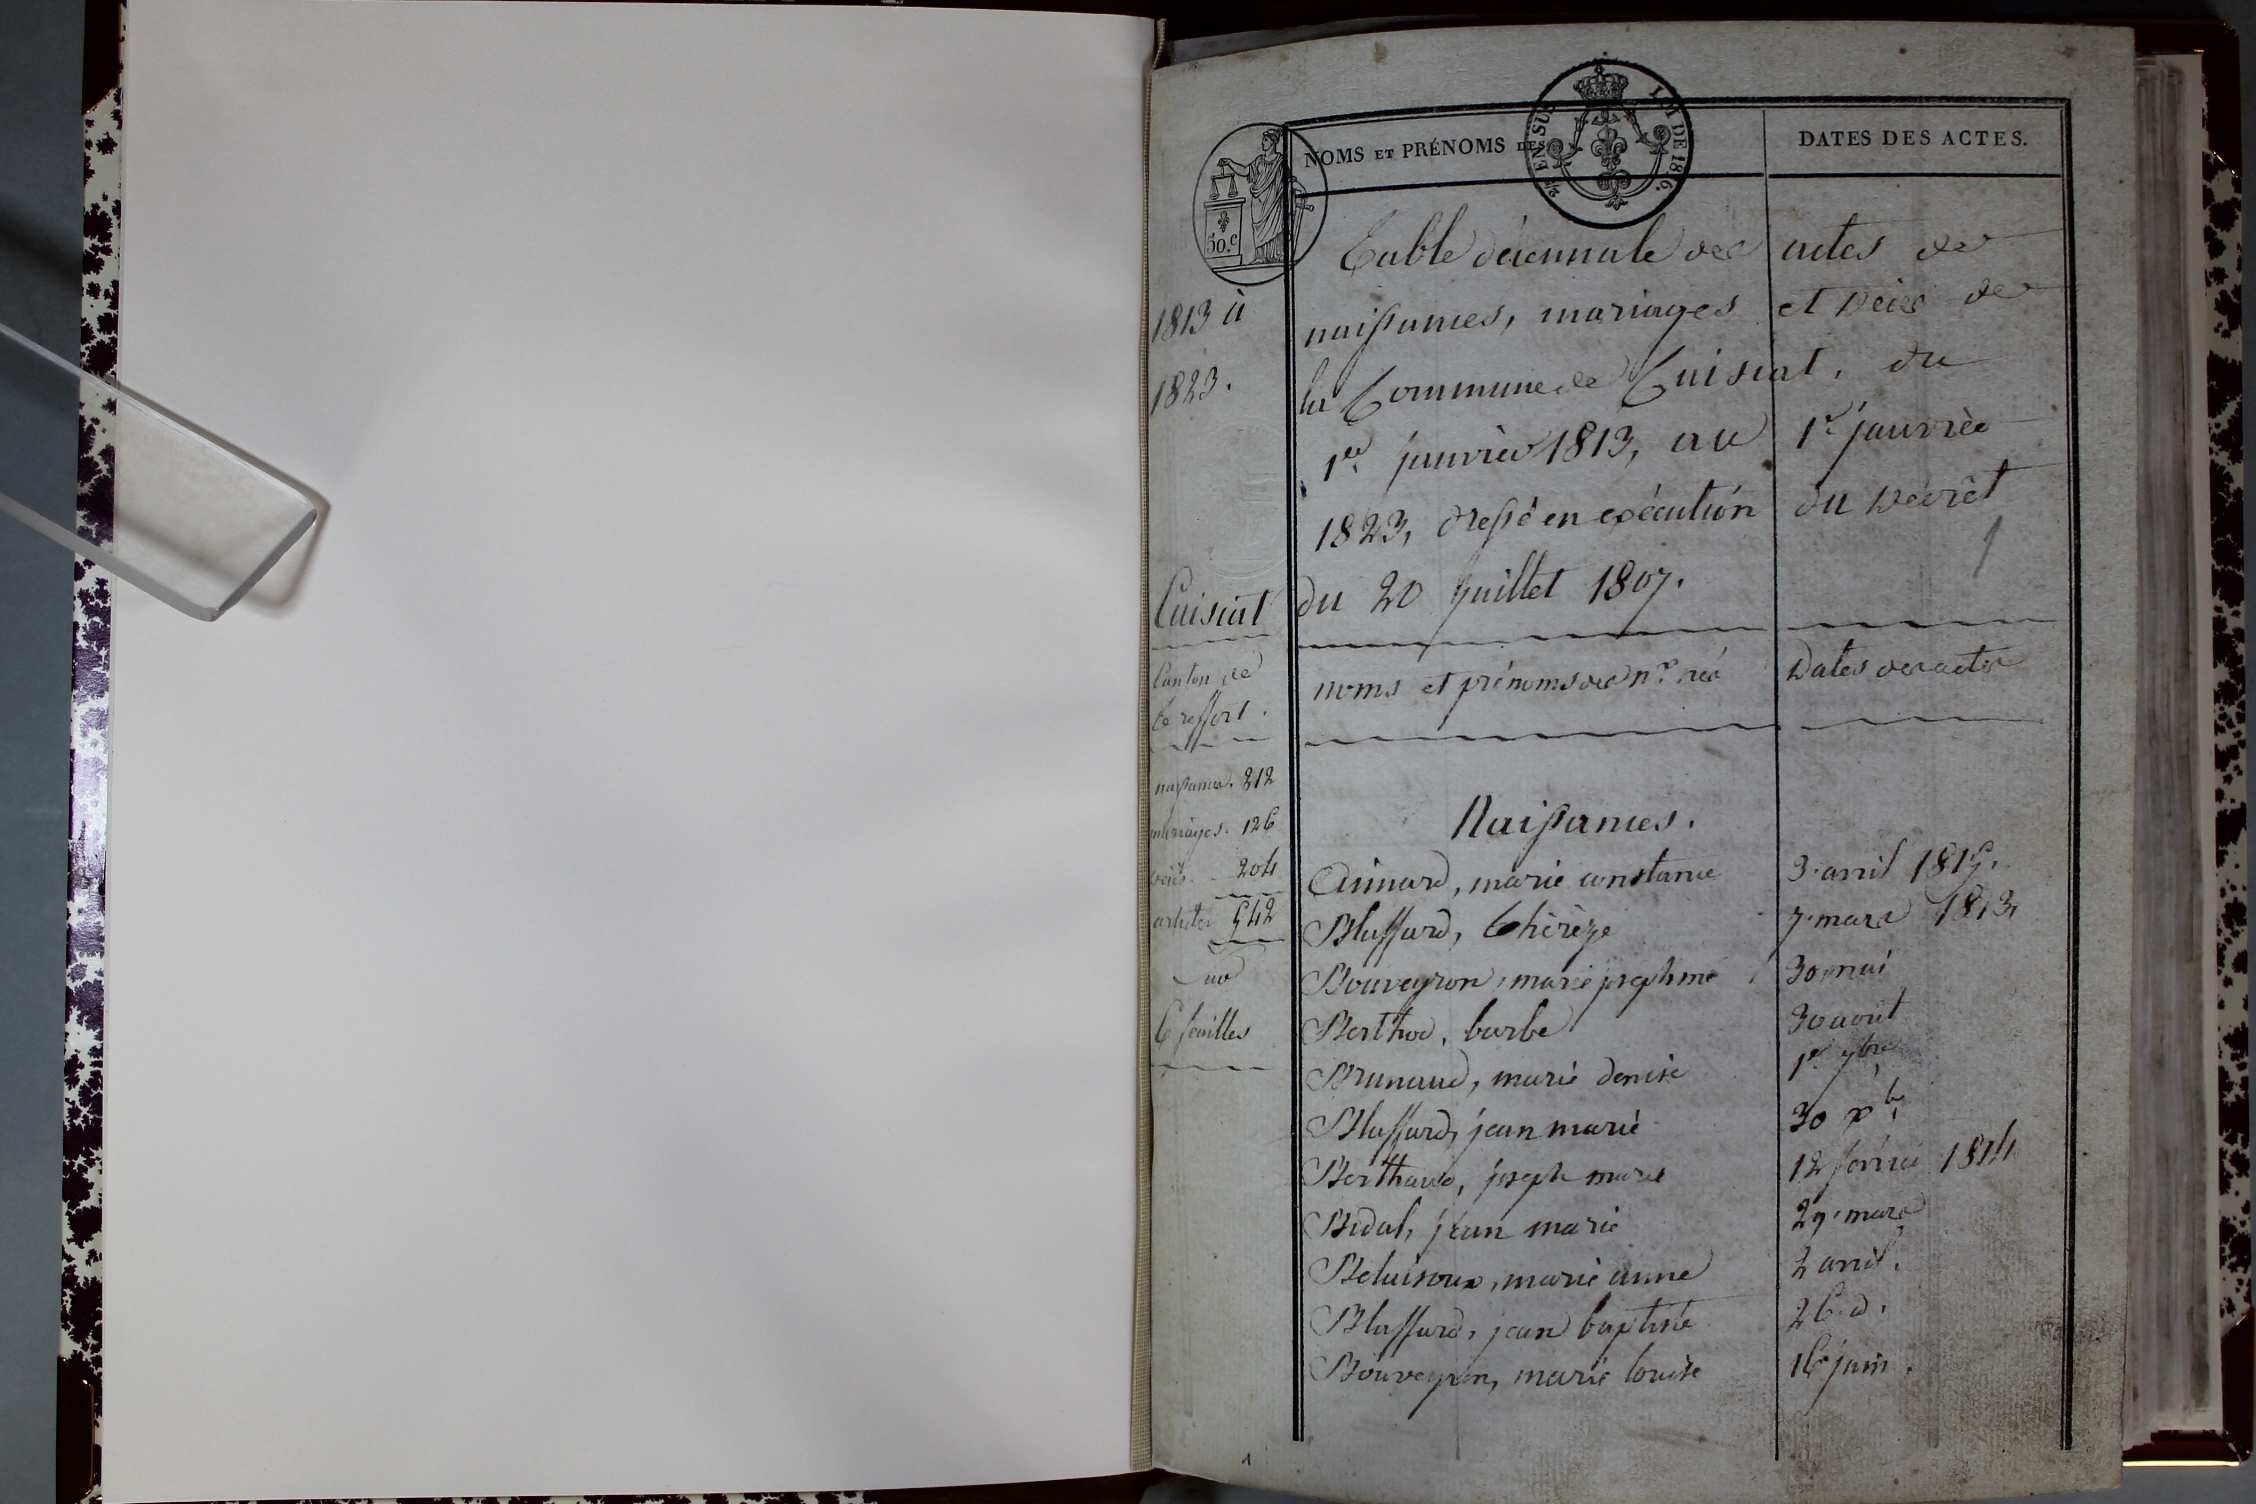 NOMS ET PRÉNOMS DES
DATES DES ACTES.
EN SUS
LOI DE 1816.
50.c
Table décennale des actes de
naissances, mariages et décès de
la Commune de Cuisiat, du
1er janvier 1813, au 1er janvier
1823, dressé en exécution du Décret
du 20 Juillet 1807.
1
1813 à
1823.
Cuisiat
Canton de
Ceffort.
naissances. 212
mariages. 126
décès. 204
542
6 feuilles
noms et prénoms des n.és
Dates des actes
Naissances.
Aimard, marie constance 3 avril 1815.
Blaffard, Thérèze 7 mars 1813,
Bouveyron, marie josephine 30 mai
Berthod, barbe 30 août
Brunaud, marie denise 1er 7bre
Blaffard, jean marie 30 xb.
Berthaud, joseph marie 12 février 1814
Bidal, jean marie 29 mars
Beluisoux, marie anne 2 avril.
Blaffard, jean baptiste 26 d.
Bouveyron, marie louise 16 juin.
1